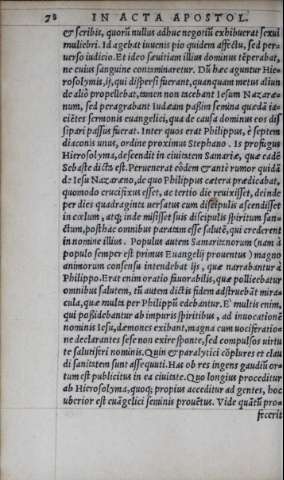 78 IN ACTA APOSTOL.
& scribis, quorũ nullus adhuc negotiũ exhibuerat sexui
muliebri. Id agebat iuuenis pio quidem affectu, sed per-
uerso iudicio. Et ideo sæuitiam illius dominus tẽperabat,
ne cuius sanguine contaminaretur. Dũ hæc aguntur Hie-
rosolymis, ij, qui dispersi fuerant, quanquam metus alium
de alio propellebat, tamen non tacebant Iesum Nazaræ-
num, sed peragrabant Iudæam passim semina quædã ia-
cietes sermonis euangelici, qua de causa dominus eos dis
sipari passus fuerat. Inter quos erat Philippus, è septem
diaconis unus, ordine proximus Stephano. Is profugus
Hierosolyma, descendit in ciuitatem Samariæ, quæ eadẽ
Sebaste dicta est. Peruenerat eòdem & antè rumor quidã
de Iesu Nazareno, de quo Philippus cætera prædicabat,
quomodo crucifixus esset, ac tertio die reuixisset, deinde
per dies quadraginta uersatus cum discipulis ascendisset
in cœlum, atq; inde misisset suis discipulis spiritum san-
ctum, posthac omnibus paratam esse salutẽ, qui crederent
in nomine illius. Populus autem Samaritanorum (nam à
populo semper est primus Euangelij prouentus) magno
animorum consensu intendebat ijs, quæ narrabantur à
Philippo. Erat enim oratio fauorabilis, quæ pollicebatur
omnibus salutem, tũ autem dictis fidem adstruebãt mira-
cula, quæ multa per Philippũ edebantur. E' multis enim,
qui possidebantur ab impuris spiritibus, ad inuocationẽ
nominis Iesu, dæmones exibant, magna cum uociferatio-
ne declarantes sese non exire sponte, sed compulsos uirtu
te salutiferi nominis. Quin & paralytici cõplures et clau
di sanitatem sunt assequuti. Has ob res ingens gaudiũ or-
tum est publicitus in ea ciuitate. Quo longius proceditur
ab Hierosolyma, quoq; propius acceditur ad gentes, hoc
uberior est euãgelici seminis prouẽtus. Vide quãtũ pro-
fecerit